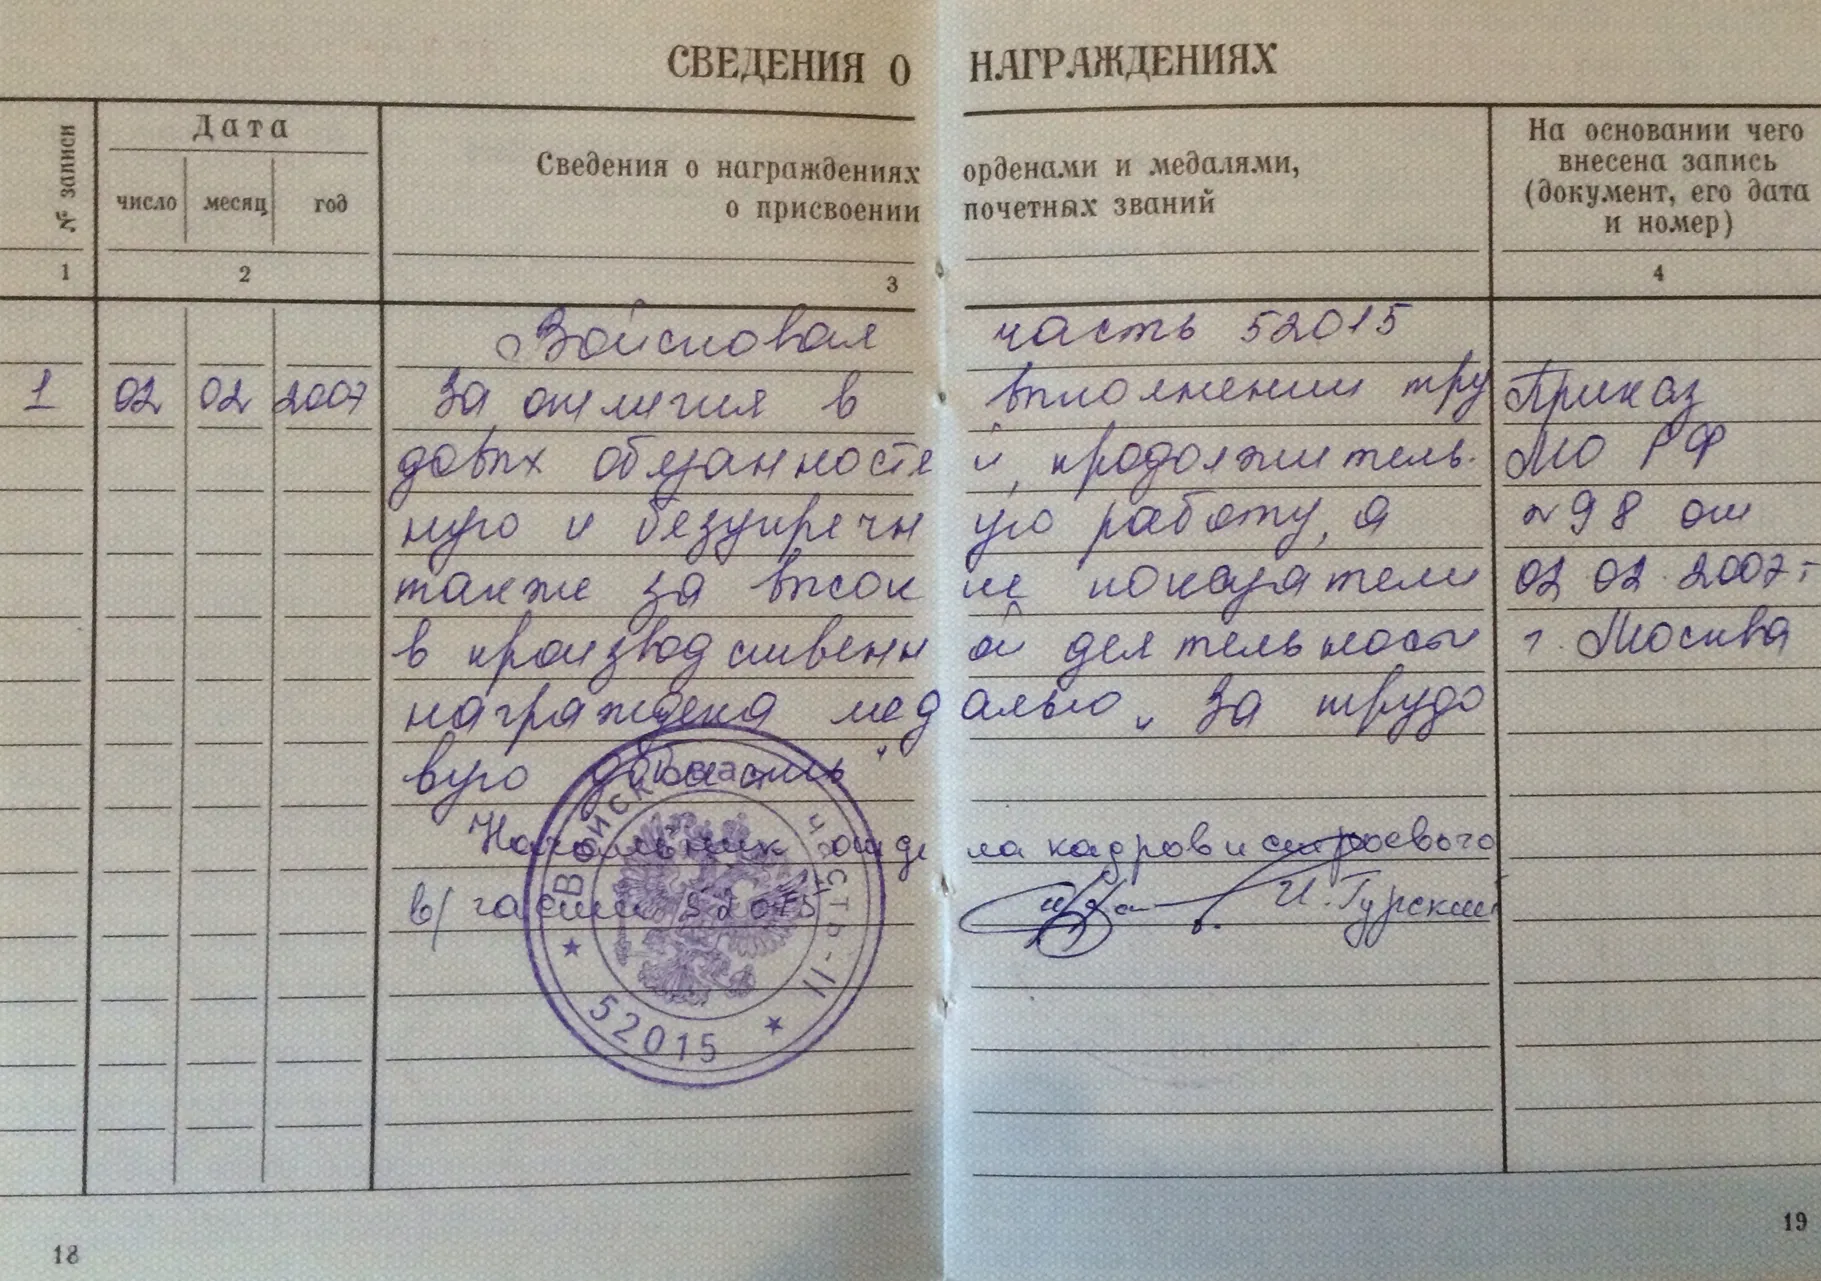 СВЕДЕНИЯ О НАГРАЖДЕНИЯХ
№ записи
Дата
число месяц год
Сведения о награждениях орденами и медалями,
о присвоении почетных званий
На основании чего
внесена запись
(документ, его дата
и номер)
1 2 3 4
Войсковая часть 52015
1 02 02 2007 За отличия в выполнении тру Приказ
довых обязанносте й, продолжитель- МО РФ
ную и безупречн ую работу, а №98 от
также за высок ие показатели 02.02.2007г
в производственн ой деятельности г. Москва
награждена мед алью „За трудо
вую доблесть"
Начальник отде ла кадров и строевого
в/части 52015 И. Гурский
Войсковая часть-II
52015
18
19